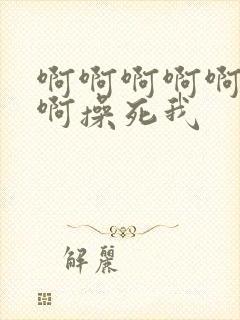 啊啊啊啊啊
啊操死我
解麗